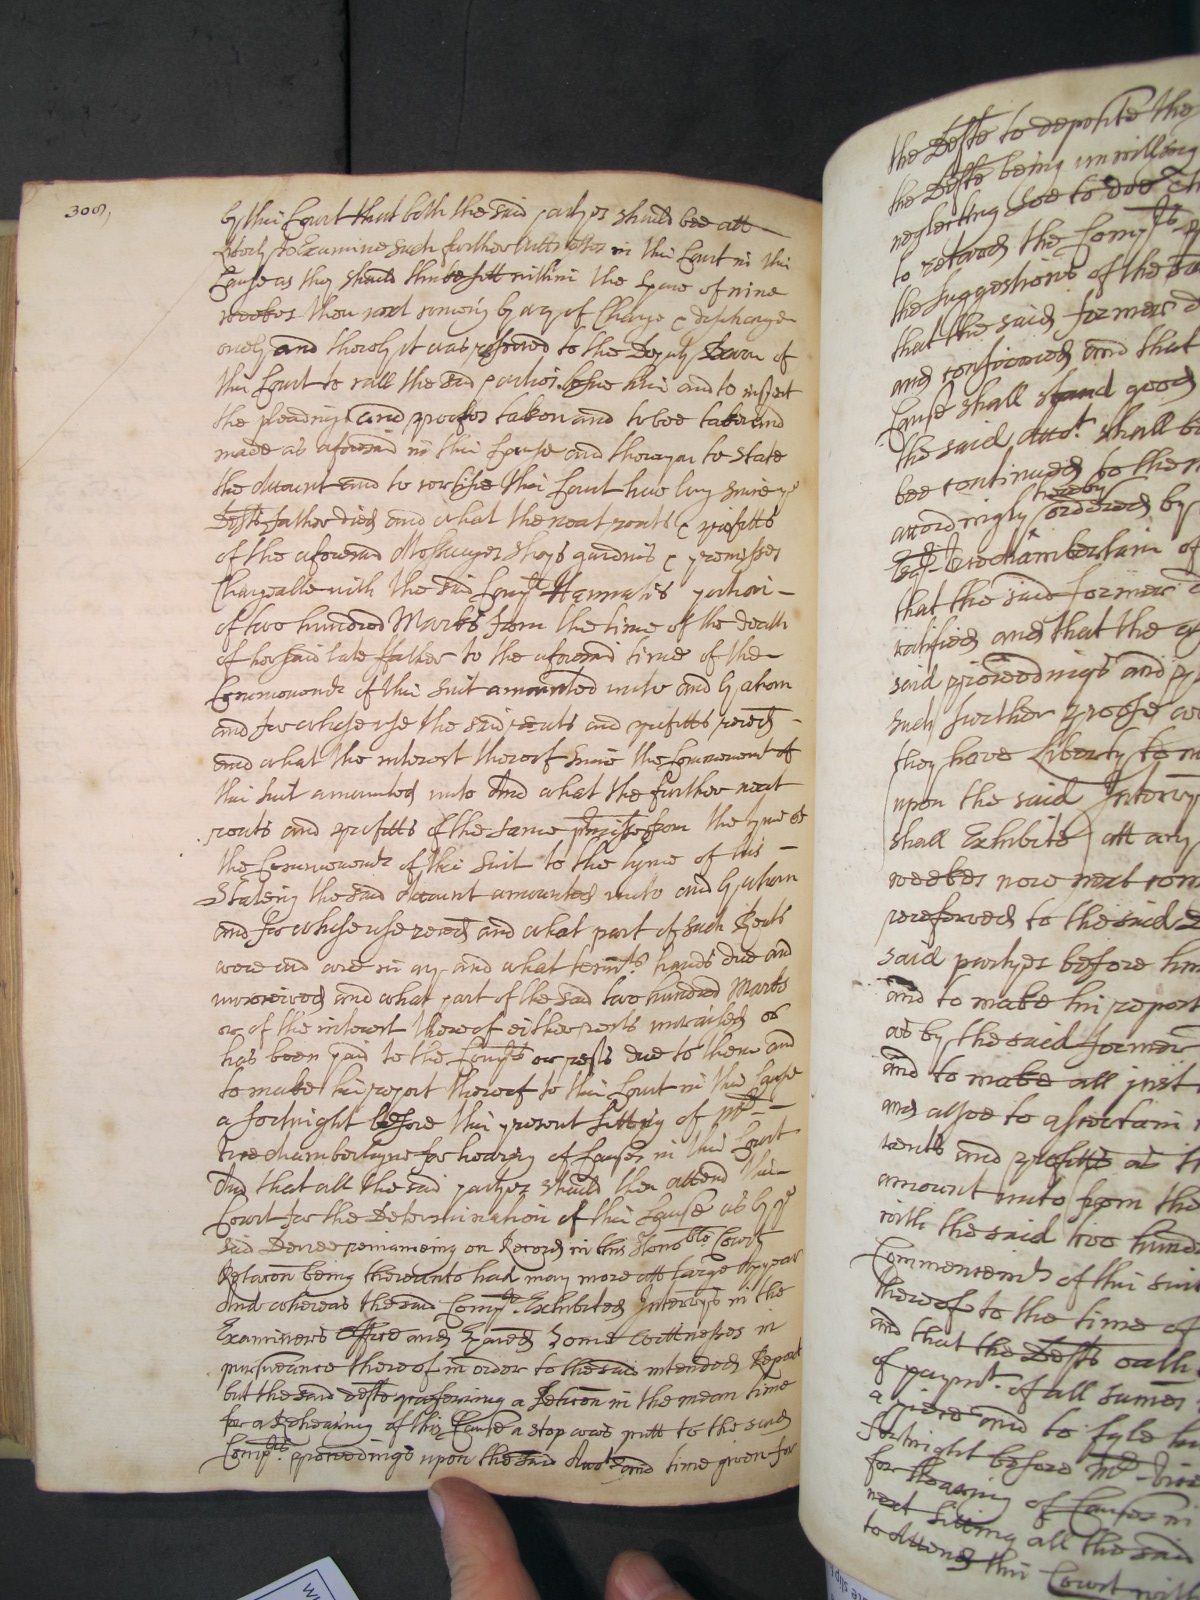 308,
by this Court that both the said partyes should bee att
Liberty to Examine such further Wittnesses in this Court in this
Cause as they should thinke fitt within the space of nine
weekes then next comeing by way of Charge & discharge
onely and thereby it was referred to the Deputy Baron of
this Court to call the said parties before him and to inspect
the pleadings and proofes taken and to bee taken and
made as aforesaid in this Cause and thereupon to State
the Account and to certifie this Court how long since ye
Defts father died and what the neat rents & profitts
of the aforesaid Messuages shops gardens & premisses
Chargeable with the said Compts Hannah's portion
of two hundred Marks from the time of the death
of her said late ffather to the aforesaid time of the
Commencemt of this suit amounted unto and by whom
and for whose use the said rents and profitts reced
and what the interest thereof since the Commencemt of
this suit amounted unto And what the further neat
rents and profitts of the same premisses from the tyme of
the Commencemt of this suit to the tyme of his
Stateing the said Account amounted unto and by whom
and for whose use reced and what part of such Rents
were and are in any and what tennts hands due and
unreceived and what part of the said two hundred Marks
or of the interest thereof either rests unraised or
has been paid to the Compts or rests due to them and
to make his report thereof to this Court in this Cause
a fortnight before this present sitting of Mr
Vicechamberlayne for hearing of Causes in this Court
And that all the said partyes should then attend this
Court for the Determination of this Cause as by ye
said Decree remaineing on Record in this Honoble Court
Relacon being thereunto had may more att large Appear
And whereas the said Compts Exhibited Interrys in the
Examiners Office and Exaied Some wittnesses in
pursueance thereof in order to the said intended Report
but the said defts preferring a Peticon in the mean time
for a Rehearing of this Cause a stop was putt to the said
Compts proceedings upon the said Acct and time given for
the Defts to deposite the
the Defts being unwilling
neglecting soe to doe
to retard the Compts
the suggestions of the
that the said former
and confirmed and that
Cause shall stand good
the said Acct shall
bee continued to the
hereby
accordingly ordered by
Vicechamberlain of
that the said former
ratified and that the
said proceedings and
such further proofe
they have Liberty to
upon the said Interrys
shall Exhibite att any
weekes now next com
rereferred to the said
said partyes before him
and to make his report
as by the said former
and to make all just
and alsoe to ascertain
rents and profitts as
amount unto from the
with the said two hund
Commencemt of this suit
thereof to the time of
and that the Defts
of paymt of all sumes
and to fyle
fortnight before Mr Vice
for Hearing of Causes in
next Sitting all the said
to Attend this Court